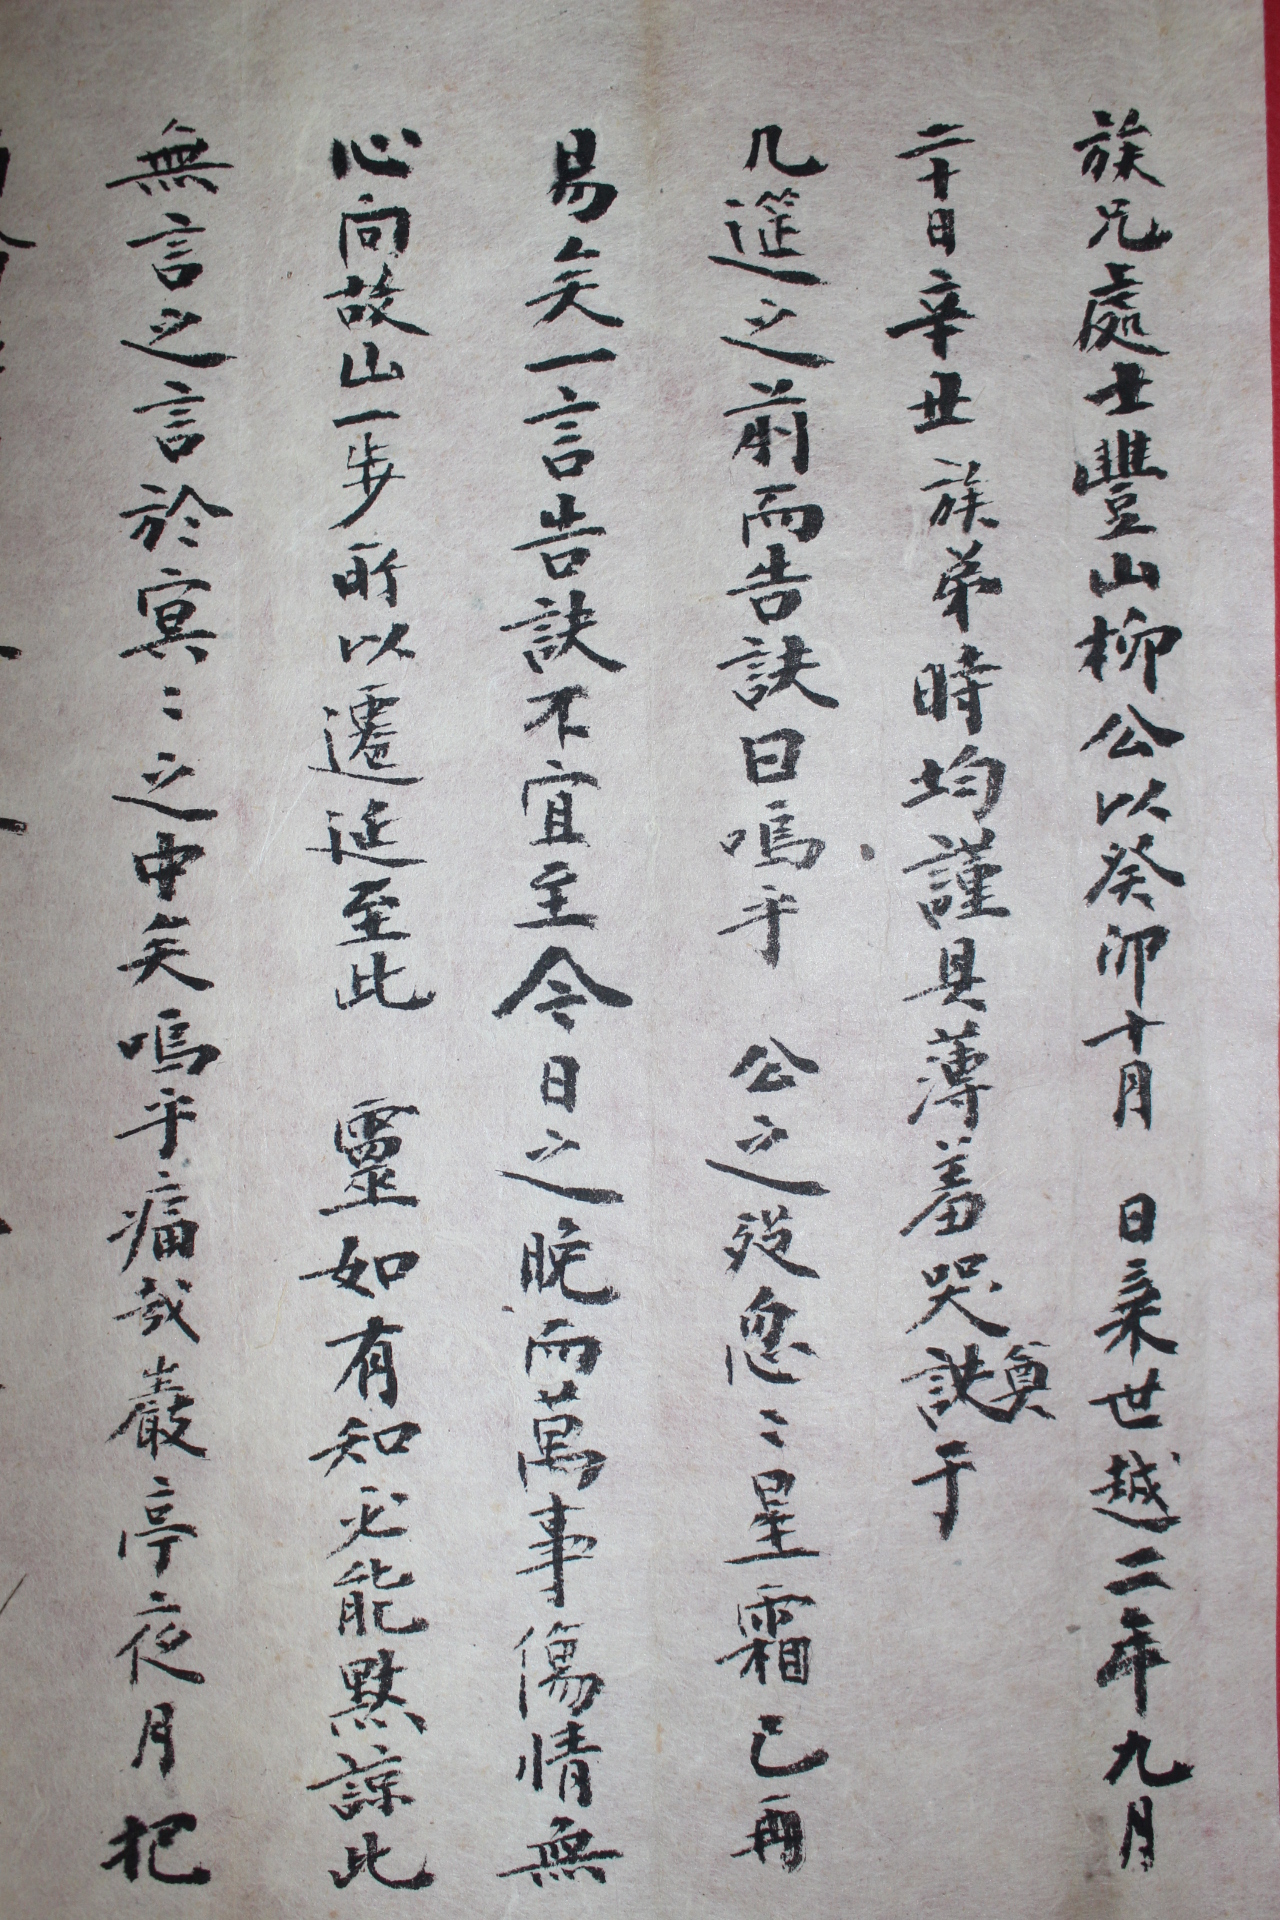 族兄處士豐山柳公以癸卯十月 日棄世越二年九月
二十日辛丑族弟時均謹具薄羞哭奠訣于
几筵之前而告訣曰嗚乎 公之歿忽〻星霜已再
易矣一言告訣不宜至今日之晩而萬事傷情無
心向故山一步所以遷延至此 靈如有知必能默諒此
無言之言於冥〻之中矣嗚乎痛哉巖亭夜月把